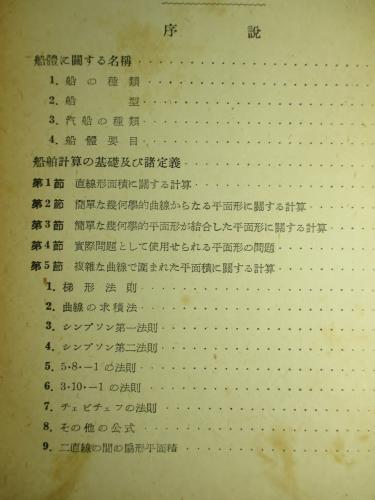 序說
船體に關する名稱
1. 船の種類
2. 船型
3. 汽船の種類
4. 船體要目
船舶計算の基礎及び諸定義
第1節 直線形面積に關する計算
第2節 簡單な幾何學的曲線からなる平面形に關する計算
第3節 簡單な幾何學的平面形が結合した平面形に關する計算
第4節 實際問題として使用せられる平面形の問題
第5節 複雜な曲線で圍まれた平面積に關する計算
1. 梯形法則
2. 曲線の求積法
3. シンプソン第一法則
4. シンプソン第二法則
5. 5・8・−1 の法則
6. 3・10・−1 の法則
7. チェビチェフの法則
8. その他の公式
9. 二直線の間の扇形平面積